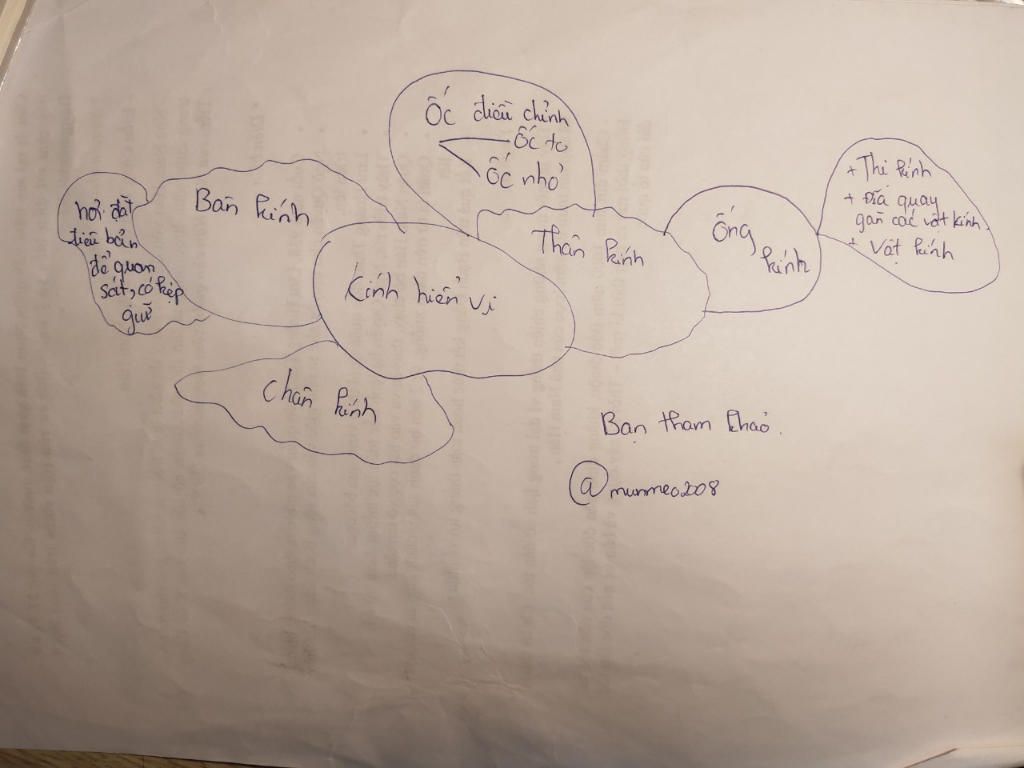 Ốc điều chỉnh
Ốc to
Ốc nhỏ
Bàn kính
nơi đặt
tiêu bản
để quan
sát, có kẹp
giữ
Kính hiển vi
Thân kính
Ống
kính
+ Thị kính
+ Đĩa quay
gắn các vật kính
+ Vật kính
Chân kính
Bạn tham khảo.
@munmeo208